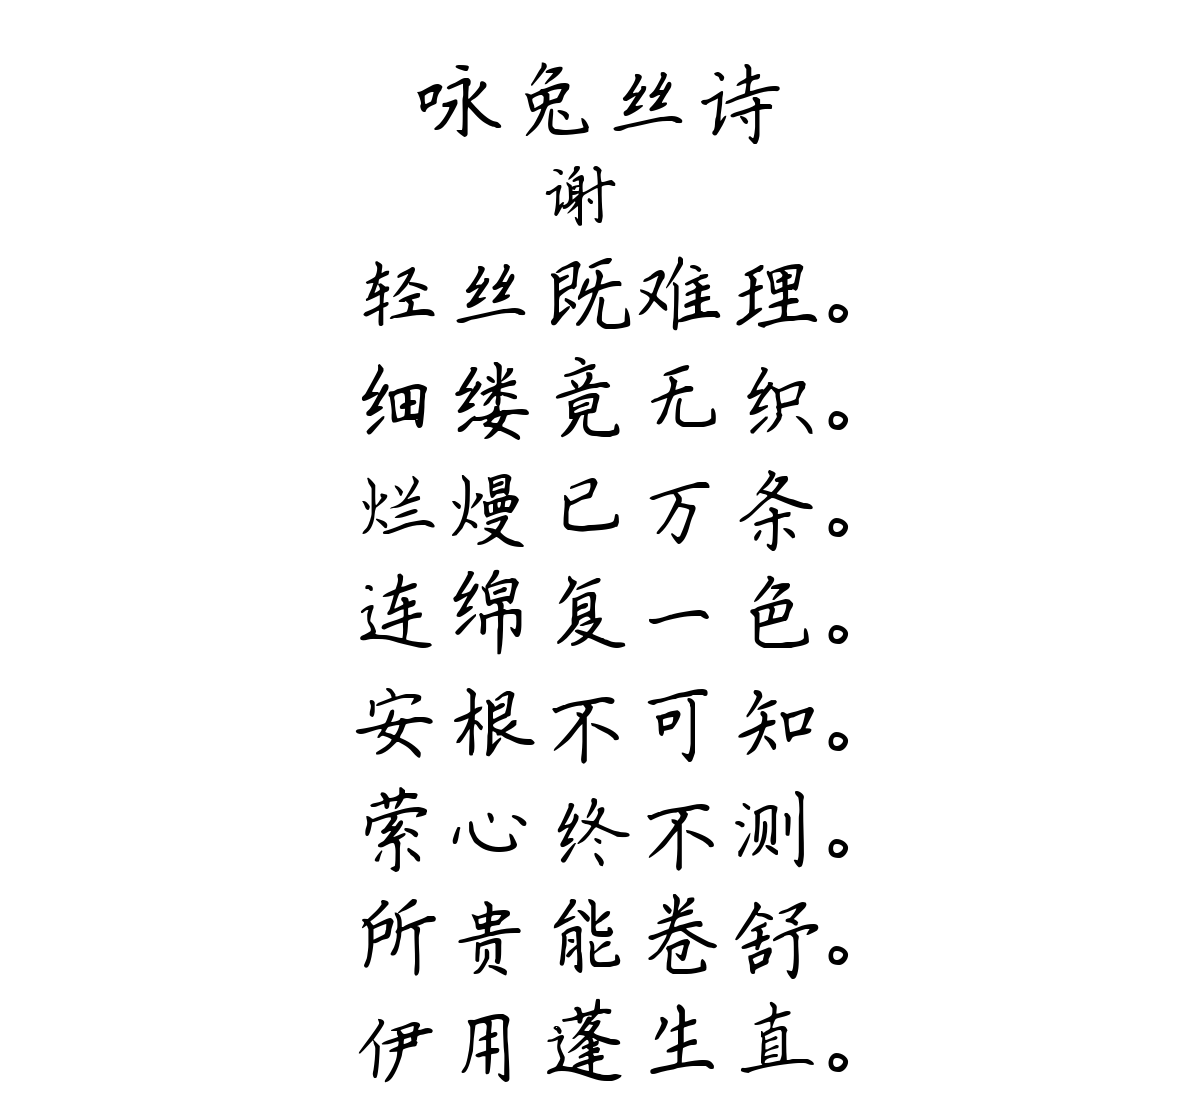 咏兔丝诗
谢
轻丝既难理。
细缕竟无织。
烂熳已万条。
连绵复一色。
安根不可知。
萦心终不测。
所贵能卷舒。
伊用蓬生直。